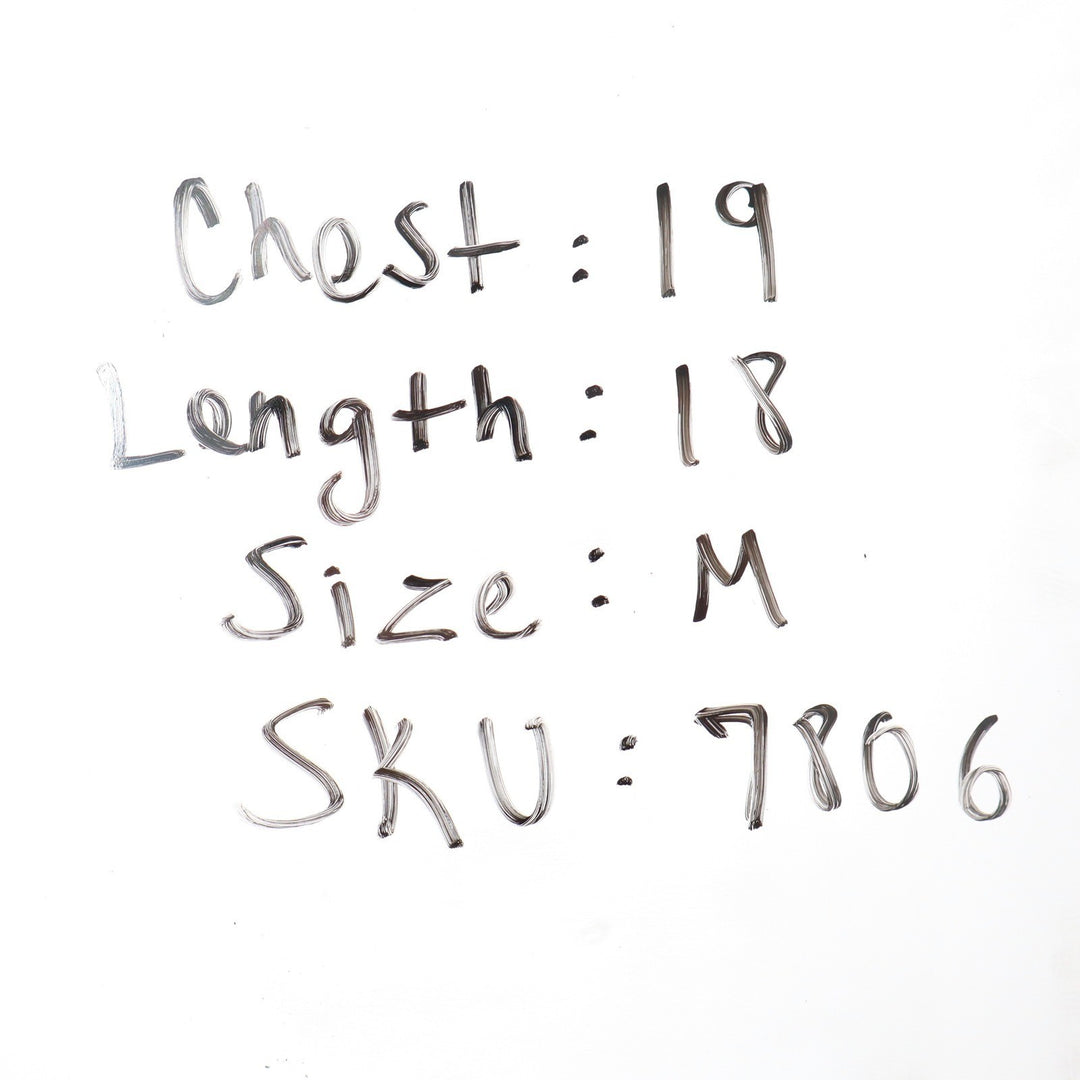 Chest : 19
Length : 18
Size : M
SKU : 7806